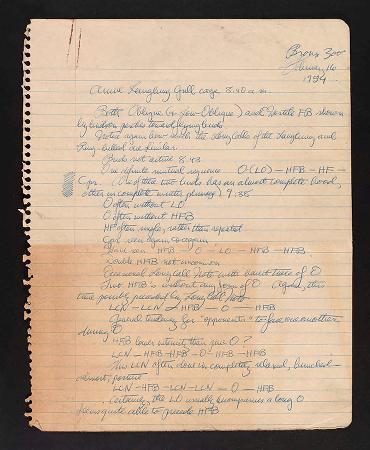 Bronx Zoo
February 16
1954
Arrive Laughing Gull cage 8:40 a.m.
Both Oblique (& Low-Oblique) and Hostile FB shown
by birds on perches toward flying birds
Notice again how similar the long calls of the Laughing and
Ring-billed are similar.
Birds not active 8:43
One definite mutual sequence O (LO) — HFB — HF —
(One of these two birds has an almost complete hood,
other in complete winter plumage) 9:35
O often without LO
O often without HFB
HF often single, rather than repeated
again
Have seen HFB — O — LO — HFB — HFB
Double HFB not uncommon
Occasional Long Call Note with faint trace of O
HFB without any form of O. Again, this
time possibly preceded by Long Call Note
LCN — LCN — HFB — O — HFB
General tendency for "opponents" to face one another
during O
HFB lower intensity than pure O?
LCN — HFB — HFB — O — HFB — HFB
This LCN often done in completely relaxed, hunched
posture
LCN — HFB — LCN — LCN — O — HFB
Certainly, the LO usually accompanies a long O
seems quite able to precede HFB